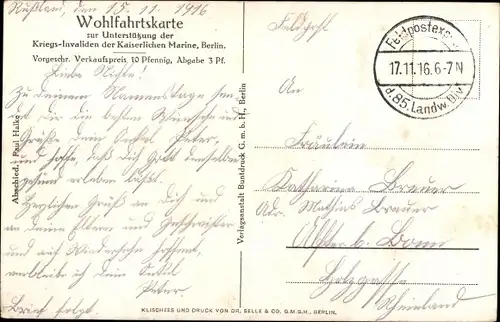 Rußland, den 15. 11. 1916
Wohlfahrtskarte
zur Unterstützung der
Kriegs-Invaliden der Kaiserlichen Marine, Berlin.
Vorgeschr. Verkaufspreis 10 Pfennig, Abgabe 3 Pf.
Liebe Nichte!
Zu deinem Namenstage sen-
det dir die besten Wünsche und
Grüße dein Onkel Peter,
und hoffe, daß dich Gott denselben
gesund erleben läßt.
Herzlichen Gruß an dich und
an deine Eltern und Geschwister
und auf Wiedersehn hoffend,
verbleibe ich dein Onkel
Peter
Brief folgt.
Abschied. Paul Halke
Verlagsanstalt Buntdruck G. m. b. H., Berlin
Feldpost
Feldpostexp.
17.11.16. 6-7 N
d. 85. Landw. Div.
An
Fräulein
Katharina Brauer
Adr. Mathias Brauer
Alfter b. Bonn
Holzgasse
Rheinland
KLISCHEES UND DRUCK VON DR. SELLE & CO. G.M.B.H., BERLIN.